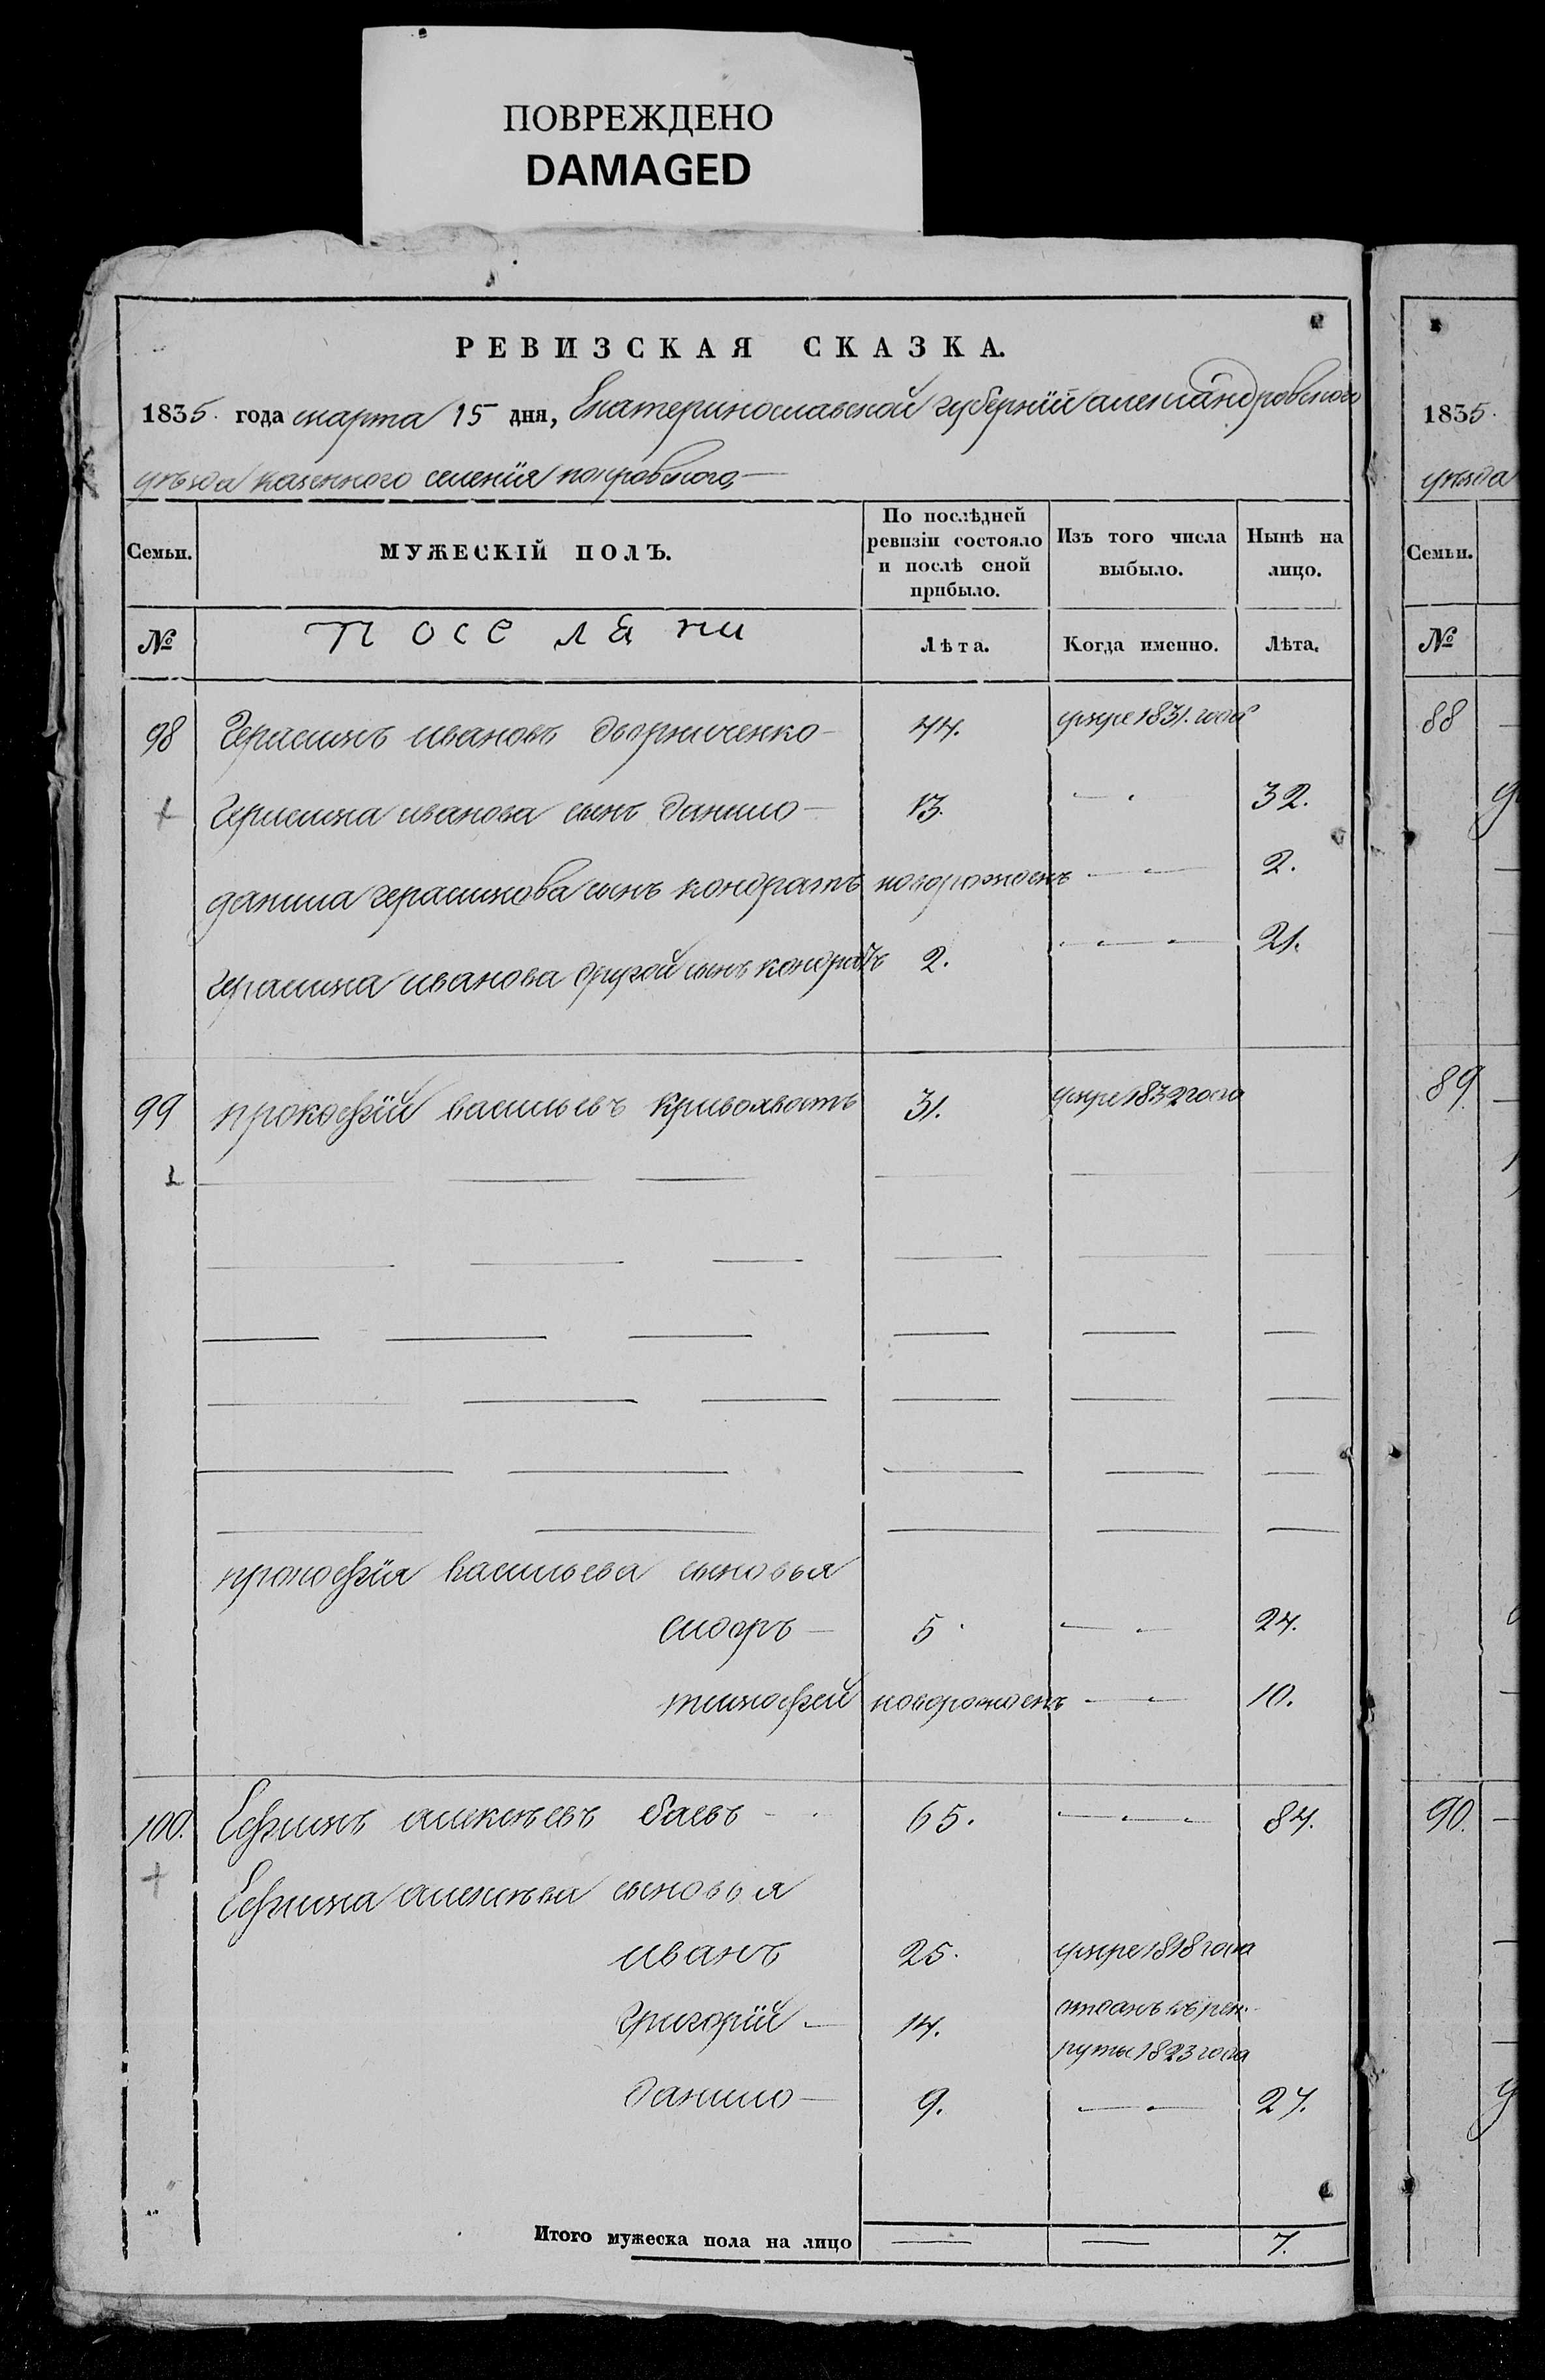 ПОВРЕЖДЕНО
DAMAGED
РЕВИЗСКАЯ СКАЗКА.
1835. года марта 15 дня, Екатеринославской губернїи александровского
уѣзда казенного селенїя покровского,
Семьи. МУЖЕСКІЙ ПОЛЪ. По послѣдней ревизіи состояло и послѣ оной прибыло. Изъ того числа выбыло. Нынѣ на лицо.
№ поселяни Лѣта. Когда именно. Лѣта.
98 Герасимъ ивановъ дворниченко 44. умре 1831. года
Герасима иванова сынъ данило 13. 32.
данила герасимова сынъ кондратъ новорожденъ 2.
герасима иванова другой сынъ кондратъ 2. 21.
99 прокофїй васильевъ кривохватъ 31. умре 1832 года
прокофїя васильева сыновья
сидоръ 5. 24.
тимофей новорожденъ 10.
100. Ефимъ алексѣевъ баевъ 65. 84.
Ефима алексѣева сыновья
иванъ 25. умре 1818 года
григорїй 14. отданъ въ рек-
руты 1823 года
данило 9. 27.
Итого мужеска пола на лицо 7.
1835.
уѣзда
Семьи.
№
88
89.
90.